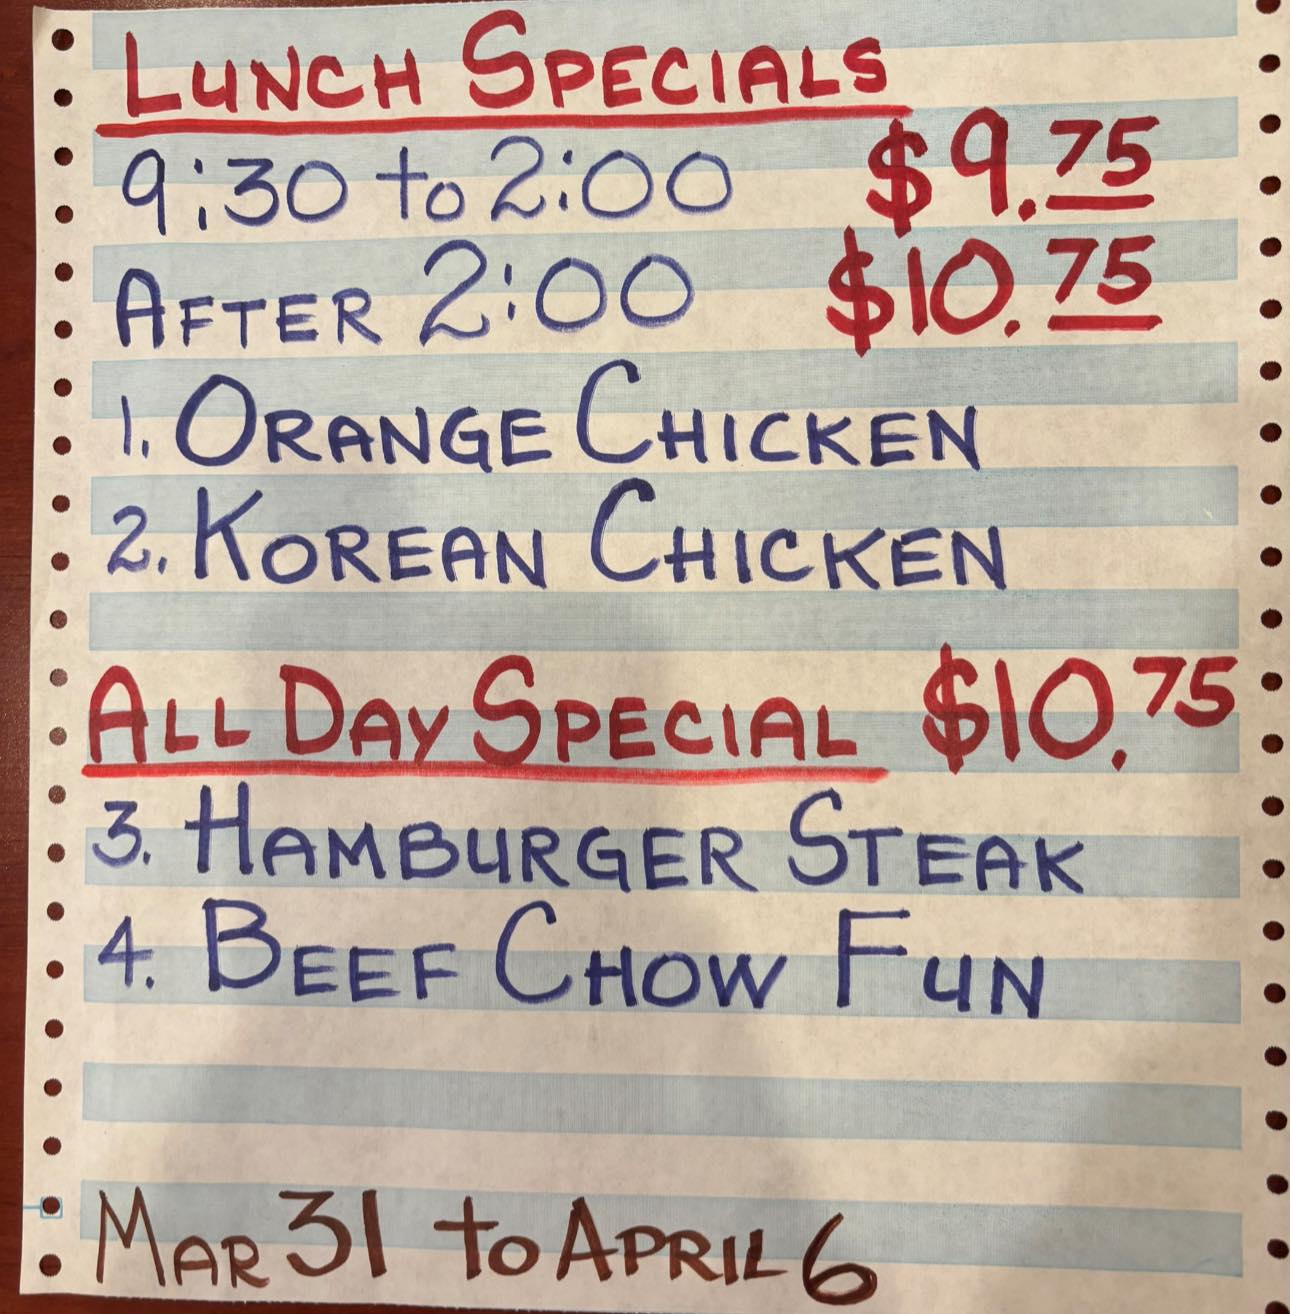 LUNCH SPECIALS
9:30 to 2:00 $9.75
AFTER 2:00 $10.75
1. ORANGE CHICKEN
2. KOREAN CHICKEN
ALL DAY SPECIAL $10.75
3. HAMBURGER STEAK
4. BEEF CHOW FUN
MAR 31 to APRIL 6